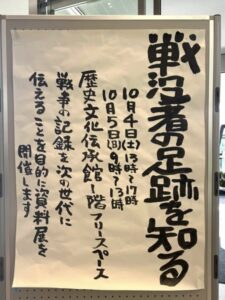 戦没者の足跡を知る
10月4日(土)13時~17時
10月5日(日)9時~13時
歴史文化伝承館1階フリースペース
戦争の記録を次の世代に
伝えることを目的に資料展を
開催します